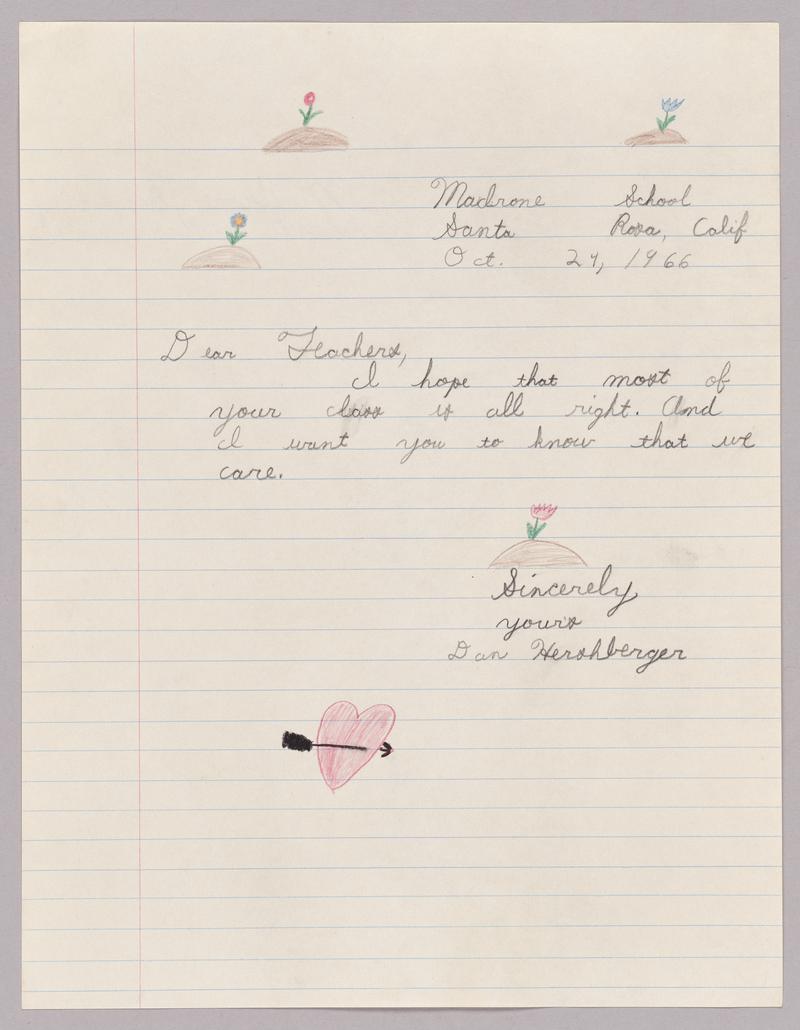 Madrone School
Santa Rosa, Calif
Oct. 24, 1966
Dear Teachers,
I hope that most of
your class is all right. And
I want you to know that we
care.
Sincerely
yours
Dan Hershberger